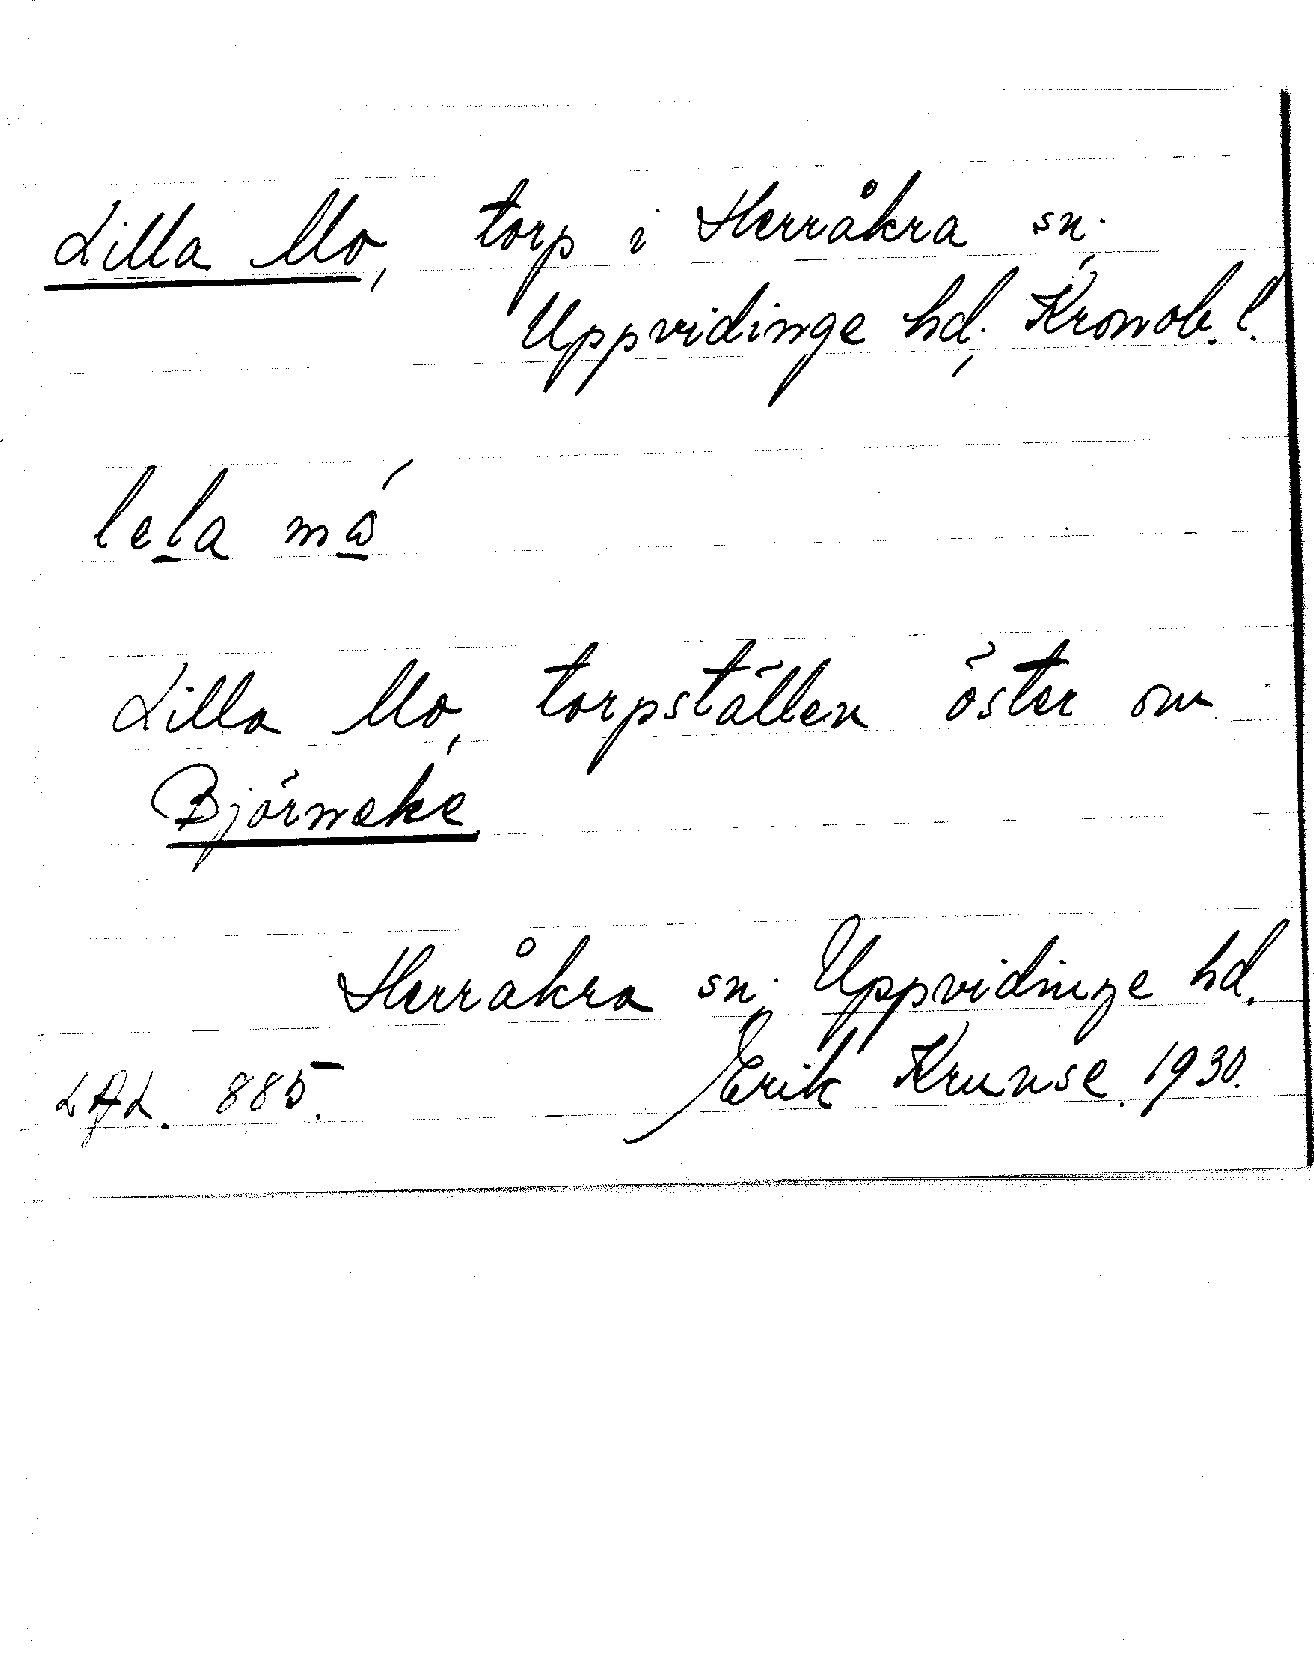 Lilla Mo, torp i Herråkra sn.
Uppvidinge hd, Kronob. l.
lela må
Lilla Mo, torpställen öster om
Björneke
Herråkra sn. Uppvidinge hd.
LAL. 885. Erik Kruuse. 1930.